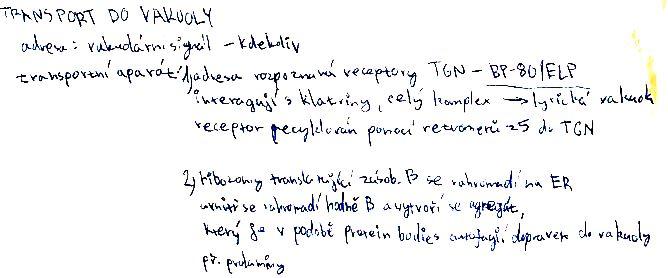 TRANSPORT DO VAKUOLY
adresa: vakuolární signál - kdekoliv
transportní aparát: 1) adresa rozpoznaná receptory TGN - BP-80/ELP
interagují s klatriny, celý komplex → lytická vakuola
receptor recyklován pomocí retromerů z5 do TGN
2) ribozomy translatující zásob. B se nahromadí na ER
uvnitř se nahromadí hodně B a vytvoří se agregát,
který je v podobě protein bodies autofagií dopraven do vakuoly
př. prolaminy